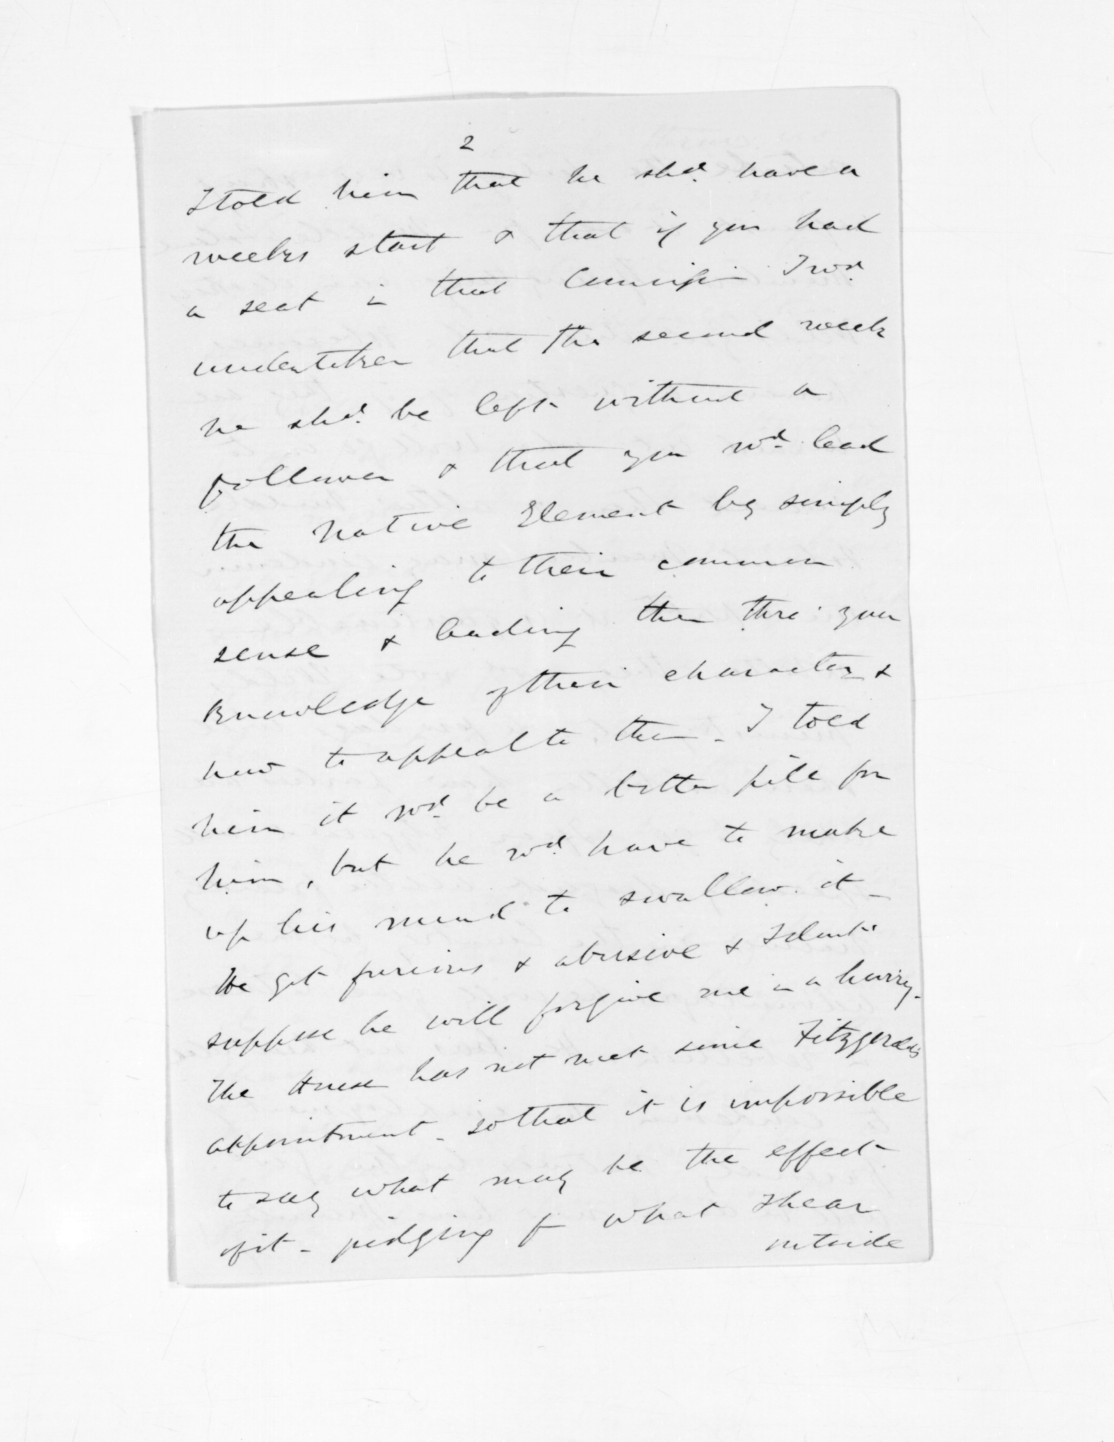 2
I told him that he shd. have a
weeks start & that if you had
a seat in that Commissn I wd.
undertaken that the second week
he shd. be left without a
follower & that you wd. lead
the Native Element by simply
appealing to their common
sense & leading them thro' your
knowledge of their character &
how to appeal to them - I told
him it wd. be a bitter pill for
him, but he wd. have to make
up his mind to swallow it -
He got furious & abusive & I don't
suppose he will forgive me in a hurry -
The House has not met since Fitzgeralds
appointment - so that it is impossible
to say what may be the effect
of it - judging fm what I hear
outside